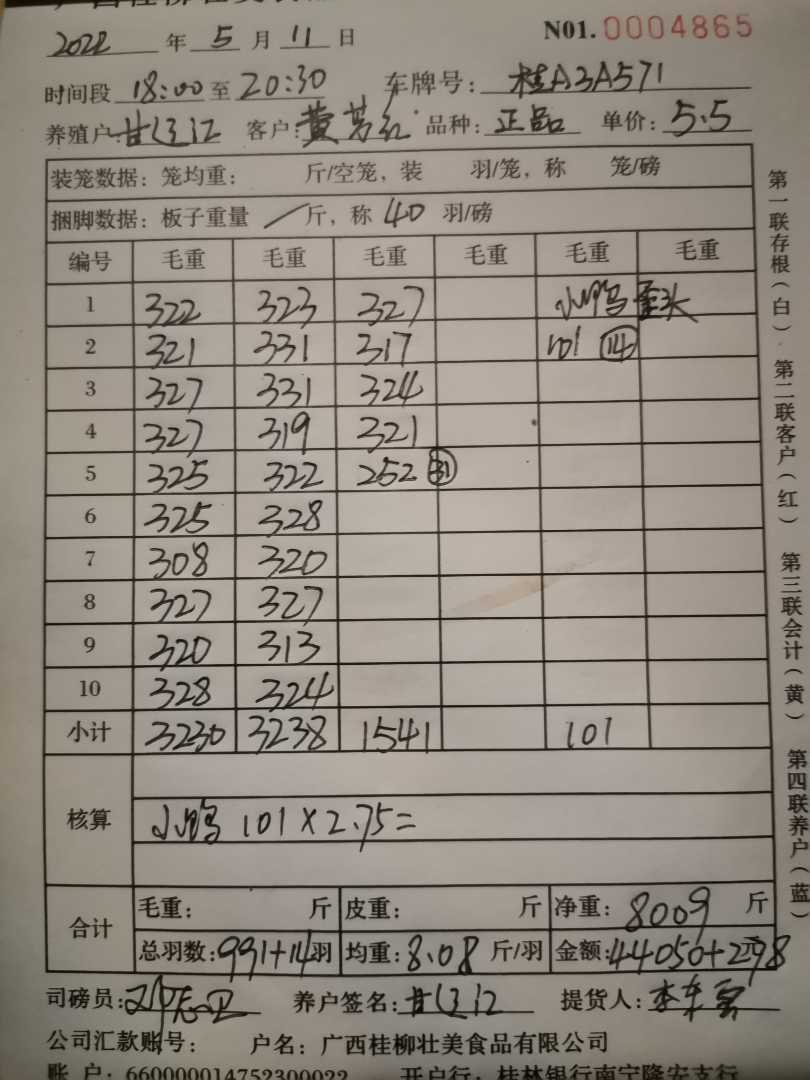 2022 年 5 月 11 日 N01. 0004865
时间段 18:00 至 20:30 车牌号: 桂A3A571
养殖户: 甘 江 客户: 黄 红 品种: 正品 单价: 5.5
装笼数据: 笼均重: 斤/空笼, 装 羽/笼, 称 笼/磅
捆脚数据: 板子重量 / 斤, 称 40 羽/磅
编号 毛重 毛重 毛重 毛重 毛重 毛重
1 322 323 327 小鸭 歪头
2 321 331 317 101 14
3 327 331 324
4 327 319 321
5 325 322 252 31
6 325 328
7 308 320
8 327 327
9 320 313
10 328 324
小计 3230 3238 1541 101
核算 小鸭 101×2.75=
合计 毛重: 斤 皮重: 斤 净重: 8009 斤
总羽数: 991+14羽 均重: 8.08 斤/羽 金额: 44050+278
司磅员: 养户签名: 甘 江 提货人: 李
公司汇款账号: 户名: 广西桂柳壮美食品有限公司
账 户: 660000014752300022 开户行: 桂林银行南宁隆安支行
第一联存根(白) 第二联客户(红) 第三联会计(黄) 第四联养户(蓝)